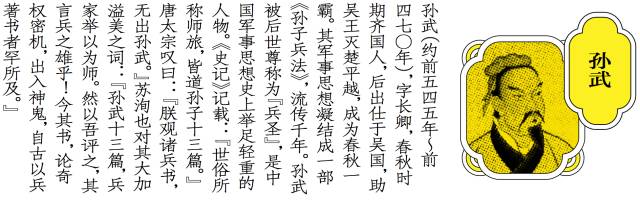 孙武
孙武（约前五四五年～前
四七〇年），字长卿，春秋时
期齐国人，后出仕于吴国，助
吴王灭楚平越，成为春秋一
霸。其军事思想凝结成一部
《孙子兵法》，流传千年。孙武
被后世尊称为『兵圣』，是中
国军事思想史上举足轻重的
人物。《史记》记载：『世俗所
称师旅，皆道孙子十三篇。』
唐太宗叹曰：『朕观诸兵书，
无出孙武。』苏洵也对其大加
溢美之词：『孙武十三篇，兵
家举以为师。然以吾评之，其
言兵之雄乎！今其书，论奇
权密机，出入神鬼，自古以兵
著书者罕所及。』